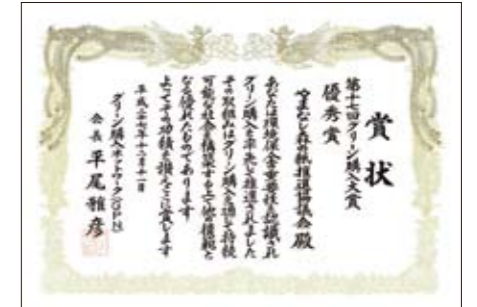 賞状
第十七回グリーン購入大賞
優秀賞
やまなし森林紙推進協議会殿
あなたは環境保全重要性を認識され
グリーン購入を率先して推進されました
その取組みはグリーン購入を通して持続
可能な社会を構築する上で他の模範と
なる優れたものであります
よってその功績を讃えここに賞します
平成二十七年十二月十一日
グリーン購入ネットワーク(GPN)
会長 平尾雅彦